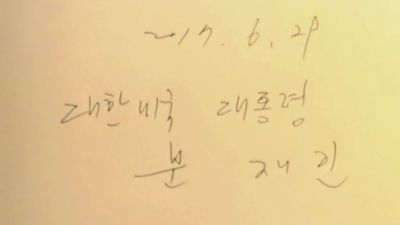 2017. 6. 29
대한민국 대통령
문 재 인